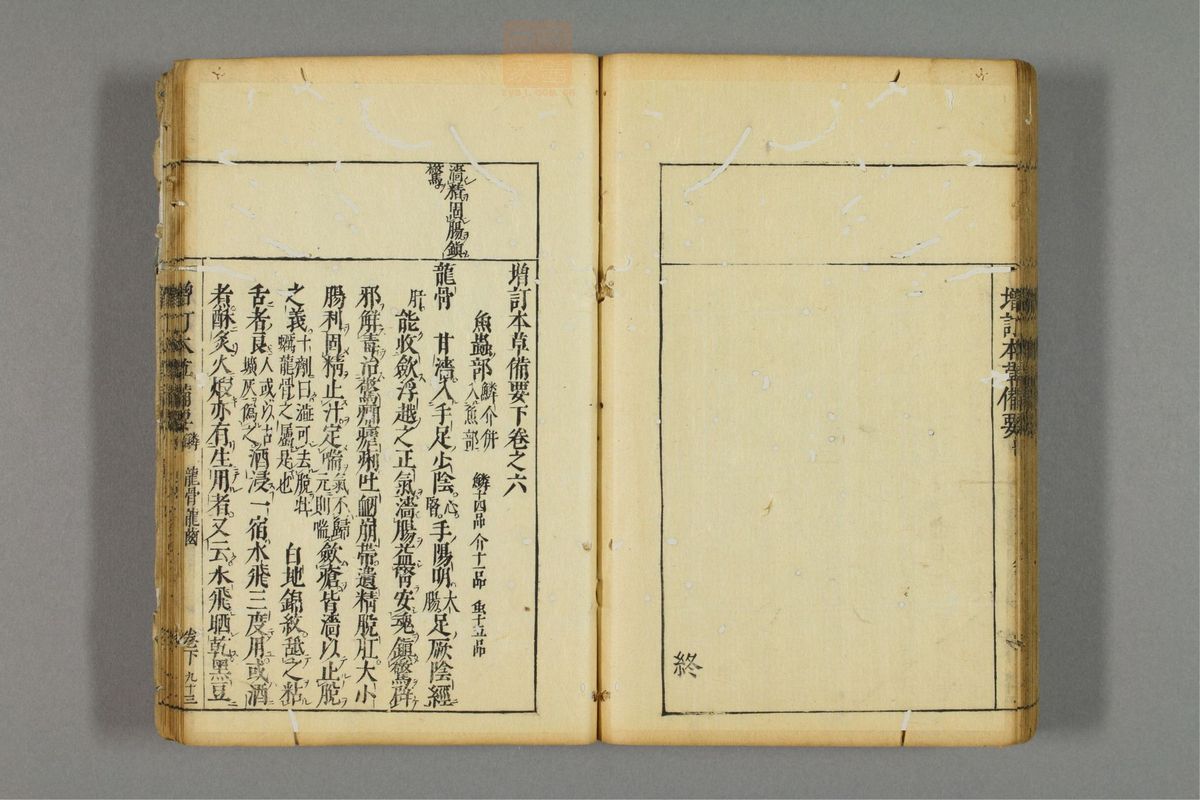 增訂本草備要
終
增訂本草備要下卷之六
魚蟲部 鱗介併入魚部 鱗十四品 介十一品 虫十五品
濇精固腸鎭驚
龍骨 甘濇入手足少陰心腎手陽明大腸足厥陰經
肝能收斂浮越之正氣濇腸益腎安魂鎭驚辟
邪解毒治驚癇瘧痢吐衂崩帶遺精脫肛大小
腸利固精止汗定喘氣不歸元則喘斂瘡皆濇以止脫
之義十劑曰濇可去脫牡蠣龍骨之屬是也 白地錦紋舐之粘
舌者良人或以古壙灰僞之酒浸一宿水飛三度用或酒
者酥炙火煆亦有生用者又云水飛晒乾黑豆
增訂本草備要 鱗 龍骨龍齒 卷下 九十三